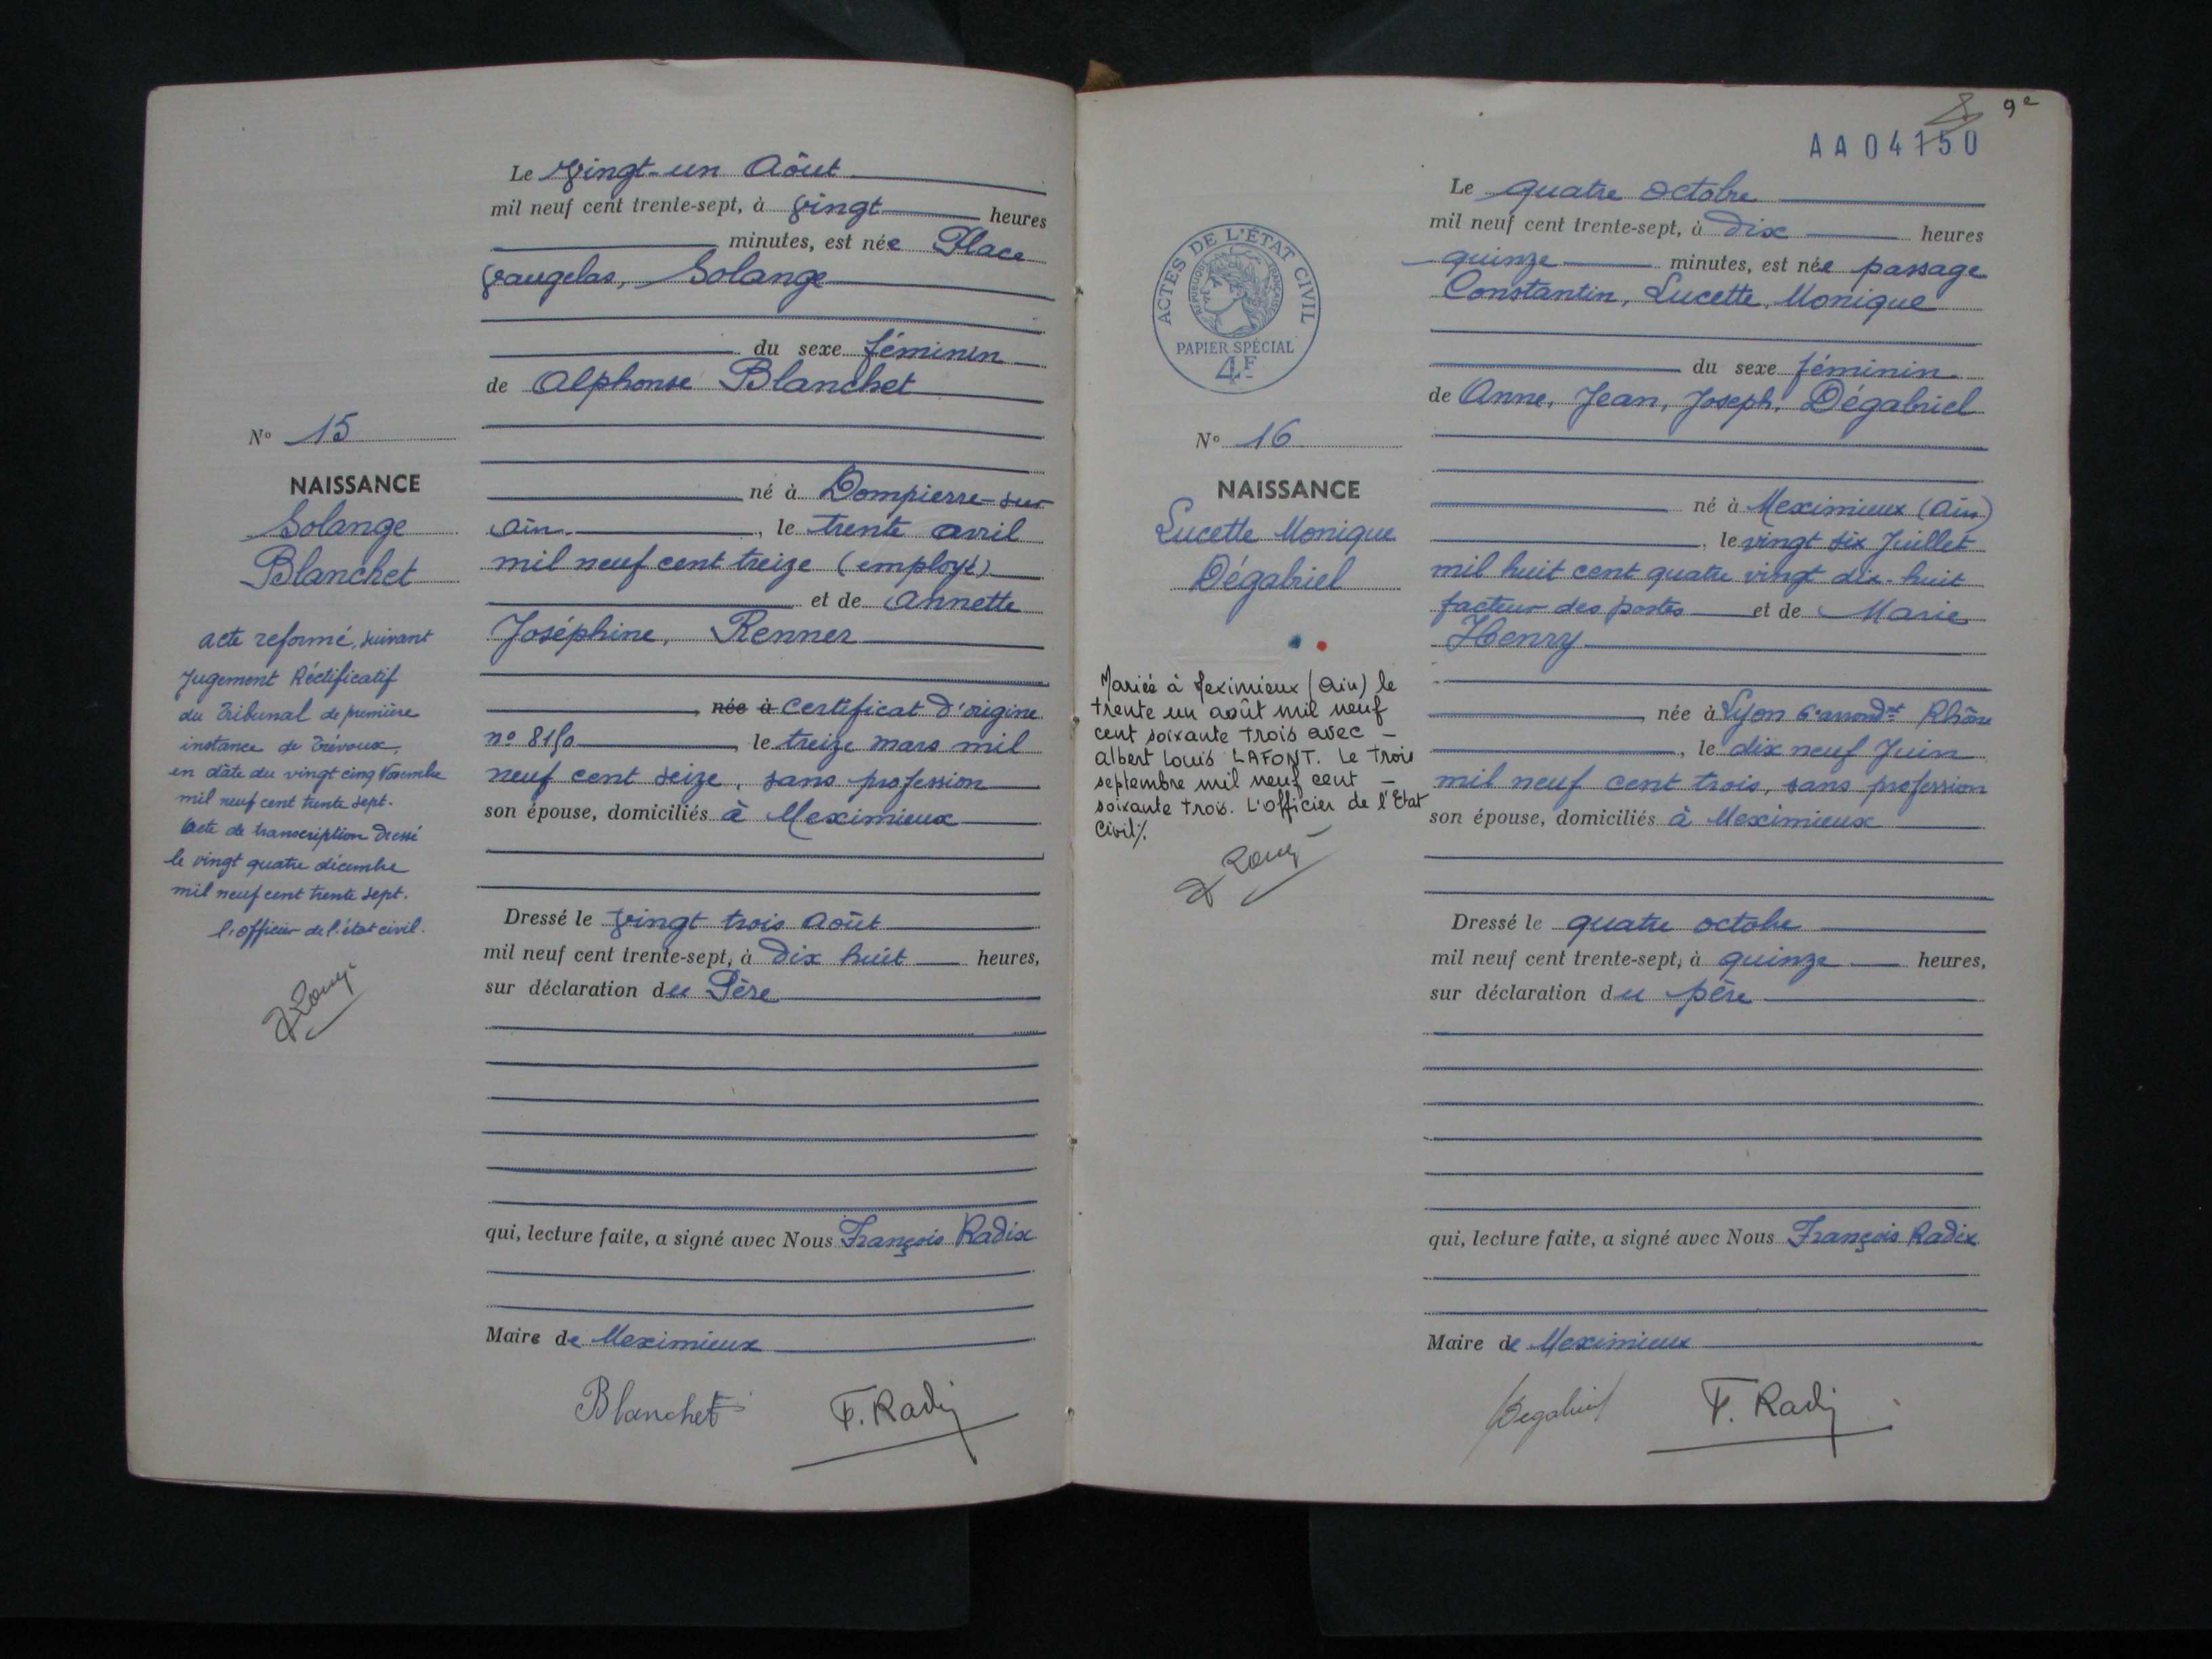 Le Vingt-un Aôut
mil neuf cent trente-sept, à Vingt heures
minutes, est née Place
Vaugelas, Solange
du sexe féminin
de Alphonse Blanchet
né à Dompierre-sur
Ain, le trente avril
mil neuf cent treize (employé)
et de Annette
Joséphine, Renner
, née à certificat d'origine
n° 8150, le treize mars mil
neuf cent seize, sans profession
son épouse, domiciliés à Meximieux
Dressé le Vingt trois Août
mil neuf cent trente-sept, à Dix huit heures,
sur déclaration du Père
qui, lecture faite, a signé avec Nous François Radix
Maire de Meximieux
Blanchet F. Radix
N° 15
NAISSANCE
Solange
Blanchet
acte reformé, suivant
Jugement Réctificatif
du Tribunal de première
instance de Trévoux,
en date du vingt cinq Novembre
mil neuf cent trente sept.
Acte de transcription Dressé
le vingt quatre décembre
mil neuf cent trente sept.
l'officier de l'état civil.
9e
AA 04750
Le quatre octobre
mil neuf cent trente-sept, à Dix heures
quinze minutes, est née passage
Constantin, Lucette, Monique
du sexe féminin
de Anne, Jean, Joseph, Dégabriel
né à Meximieux (Ain)
, le vingt six Juillet
mil huit cent quatre vingt dix-huit
facteur des postes et de Marie
Henry
, née à Lyon 6e arrondt Rhône
, le dix neuf Juin
mil neuf cent trois, sans profession
son épouse, domiciliés à Meximieux
Dressé le quatre octobre
mil neuf cent trente-sept, à quinze heures,
sur déclaration du père
qui, lecture faite, a signé avec Nous François Radix
Maire de Meximieux
Dégabriel F. Radix
ACTES DE L'ÉTAT CIVIL
RÉPUBLIQUE FRANÇAISE
PAPIER SPÉCIAL
4F
N° 16
NAISSANCE
Lucette Monique
Dégabriel
Mariée à Meximieux (Ain) le
trente un août mil neuf
cent soixante trois avec -
Albert Louis LAFONT. Le trois
septembre mil neuf cent -
soixante trois. L'officier de l'Etat
Civil%.